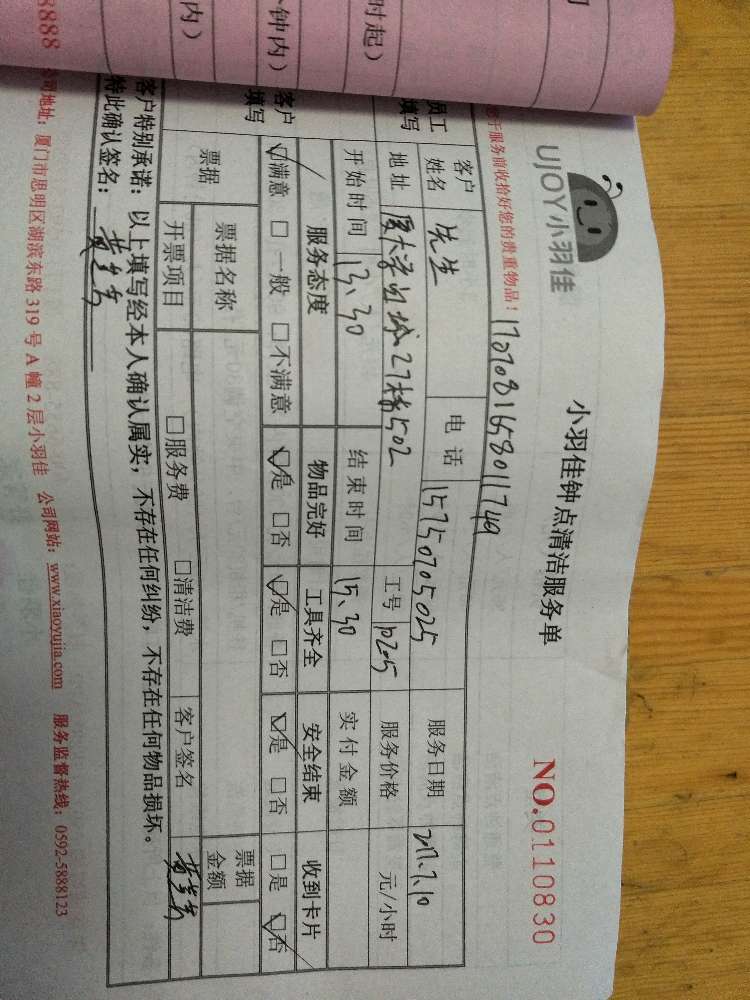 UJOY小羽佳
小羽佳钟点清洁服务单
NO.0110830
于服务前收拾好您的贵重物品！
17070816580011749
客户姓名 先生 电话 15750705025 服务日期 2017.7.10
地址 27楼502 工号 服务价格 元/小时
开始时间 13.30 结束时间 15.30 实付金额
服务态度 物品完好 工具齐全 安全结束 收到卡片
☑满意 □一般 □不满意 ☑是 □否 ☑是 □否 ☑是 □否 □是 ☑否
票据 票据名称 票据金额
开票项目 □服务费 □清洁费 客户签名
员工填写
客户填写
客户特别承诺：以上填写经本人确认属实，不存在任何纠纷，不存在任何物品损坏。
特此确认签名：
8888 公司地址：厦门市思明区湖滨东路 319 号 A 幢 2 层小羽佳 公司网站：www.xiaoyujia.com 服务监督热线：0592-5888123
时起）
钟内）
内）